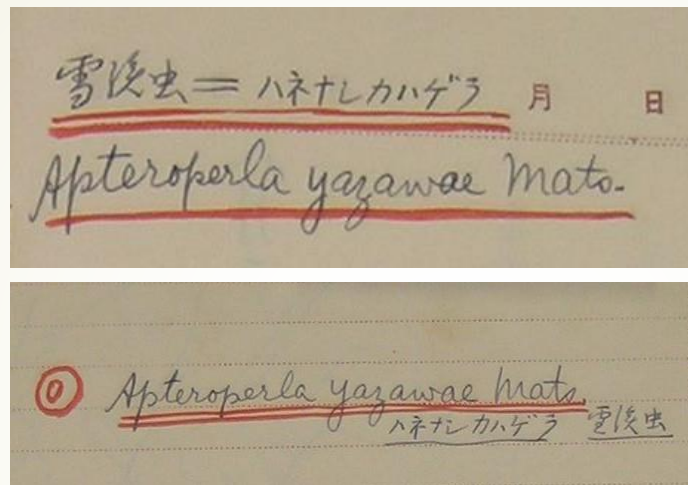 雪渓虫=ハネナシカハゲラ 月 日
Apteroperla yazawae Mats.
0 Apteroperla yazawae Mats.
ハネナシカハゲラ 雪渓虫